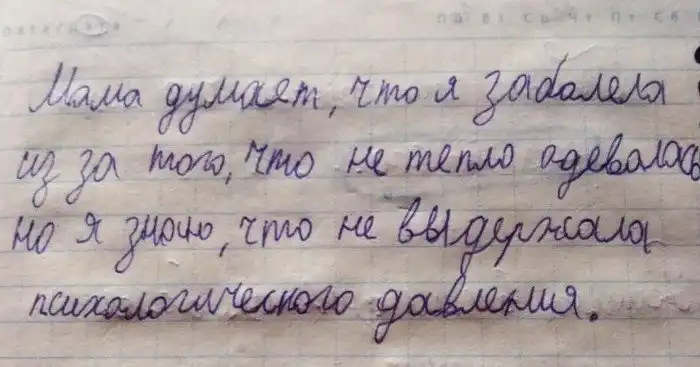 пн вт ср чт пт сб
Мама думает, что я заболела
из за того, что не тепло одевалась
но я знаю, что не выдержала
психологического давления.